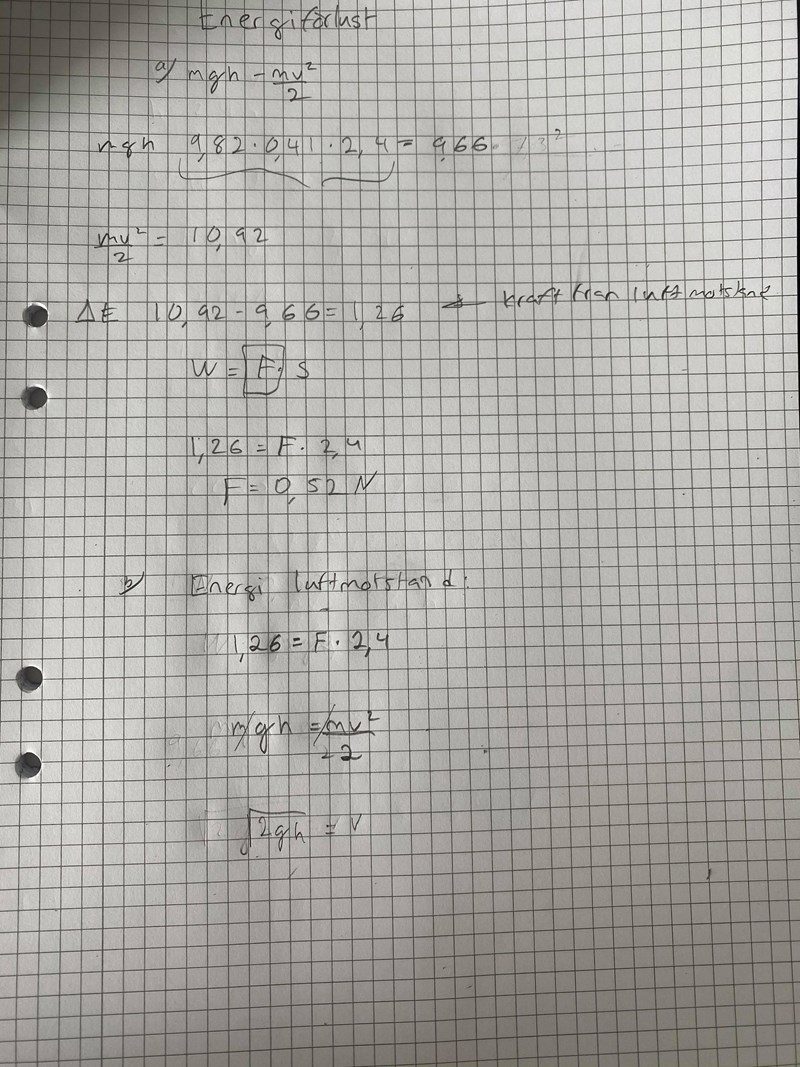 Energiförlust
a) mgh - mv²/2
mgh 9,82 · 0,41 · 2,4 = 9,66
mv²/2 = 10,92
ΔE 10,92 - 9,66 = 1,26 ← kraft från luftmotstånd
W = F · s
1,26 = F · 2,4
F = 0,52 N
b) Energi luftmotstand:
1,26 = F · 2,4
mgh = mv²/2
√2gh = v